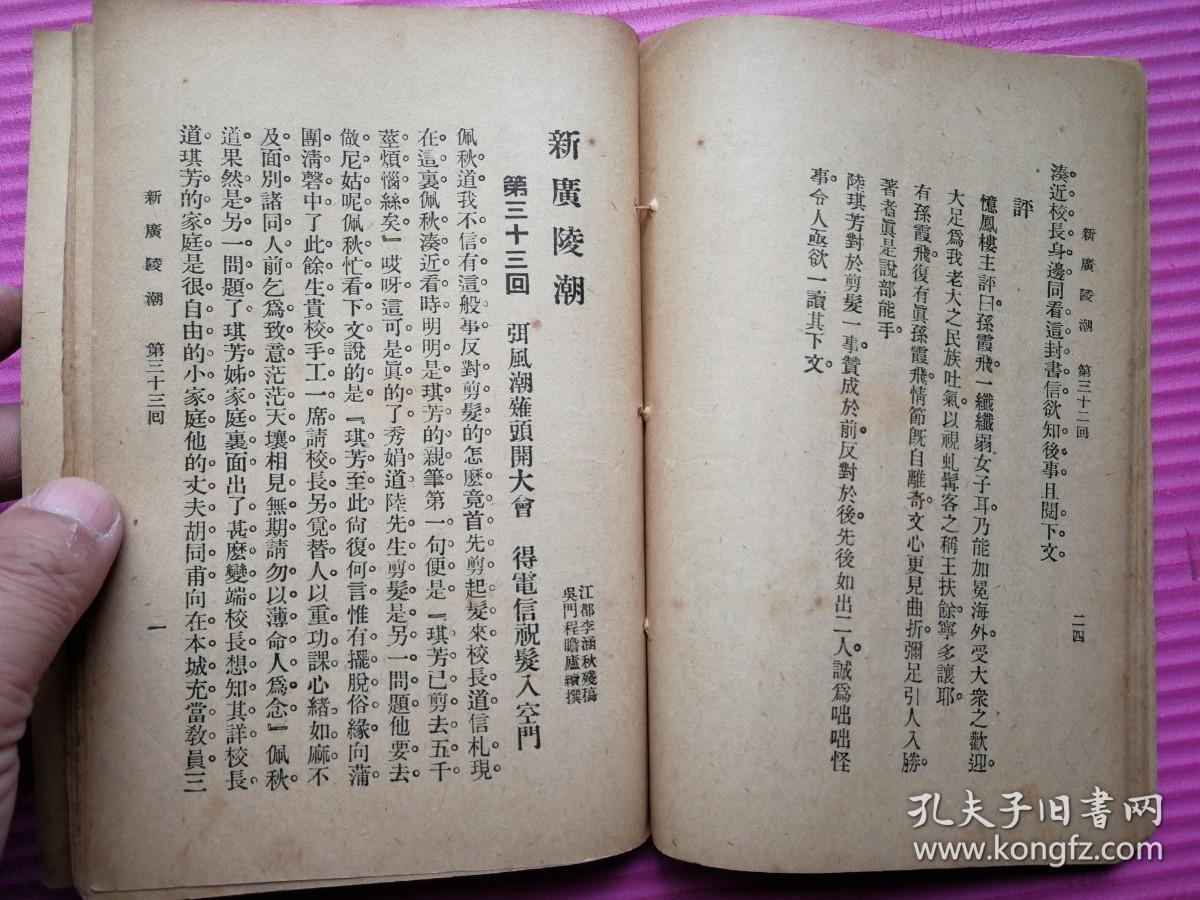 新廣陵潮　第三十二回
二四
湊近校長身邊同看這封書信欲知後事且閱下文。
評
憶鳳樓主評曰孫霞飛一纖纖弱女子耳乃能加冕海外受大衆之歡迎
大足爲我老大之民族吐氣以視虬髯客之稱王扶餘寧多讓耶
有孫霞飛復有眞孫霞飛情節旣自離奇文心更見曲折彌足引人入勝
著者眞是說部能手
陸琪芳對於剪髮一事贊成於前反對於後先後如出二人誠爲咄咄怪
事令人亟欲一讀其下文。
新廣陵潮
江都李涵秋殘稿
吳門程瞻廬續撰
第三十三回　弭風潮薙頭開大會　得電信祝髮入空門
佩秋道我不信有這般事反對剪髮的怎麽竟首先剪起髮來校長道信札現
在這裏佩秋湊近看時明明是琪芳的親筆第一句便是『琪芳已剪去五千
莖煩惱絲矣』哎呀這可是眞的了秀娟道陸先生剪髮是另一問題他要去
做尼姑呢佩秋忙看下文說的是『琪芳至此尙復何言惟有擺脫俗緣向蒲
團淸磬中了此餘生貴校手工一席請校長另覓替人以重功課心緒如麻不
及面別諸同人前乞爲致意茫茫天壤相見無期請勿以薄命人爲念』佩秋
道果然是另一問題了琪芳姊家庭裏面出了甚麽變端校長想知其詳校長
道琪芳的家庭是很自由的小家庭他的丈夫胡同甫向在本城充當敎員三
新廣陵潮　第三十三回
一
孔夫子旧书网
www.kongfz.com